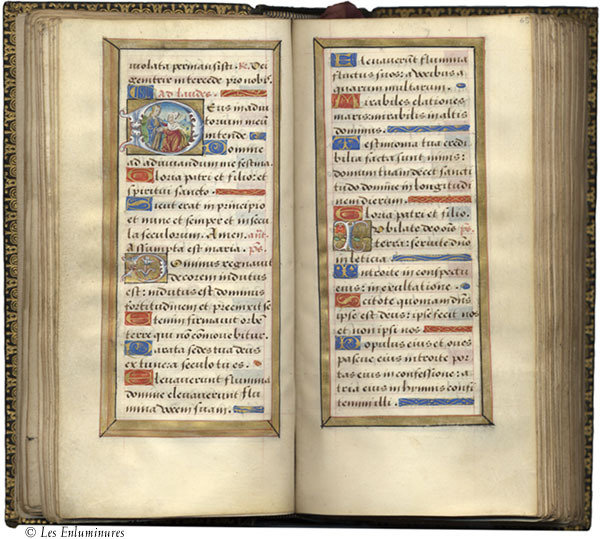 violata permansisti. R. Dei
genitrix intercede pro nobis.
Ad laudes.
Deus in adiu
torium meu
intende
Domine
ad adiuvandum me festina
Gloria patri et filio: et
spiritui sancto.
Sicut erat in principio
et nunc et semper et in secu
la seculorum. Amen. ant.
Assumpta est maria. ps.
Dominus regnavit
decorem indutus
est: indutus est dominus
fortitudinem et precinxit se
Etenim firmavit orbe
terre qui non comovebitur.
Parata sedes tua deus
ex tunc a seculo tu es.
Elevaverunt flumina
domine elevaverunt flu
mina vocem suam.
65
Elevaverunt flumina
fluctus suos: a vocibus a
quarum multarum.
Mirabiles elationes
maris: mirabilis in altis
dominus.
Testimonia tua credi
bilia facta sunt nimis:
domum tuam decet sancti
tudo domine in longitudi
nem dierum.
Gloria patri et filio.
Iubilate deo ois ps.
terra: servite dno
in leticia.
Introite in conspectu
eius: in exultatione.
Scitote quoniam dns
ipse est deus: ipse fecit nos
et non ipsi nos
Populus eius et oves
pascue eius introite por
tas eius in confessione: a
tria eius in hymnis confi
temini illi.
© Les Enluminures